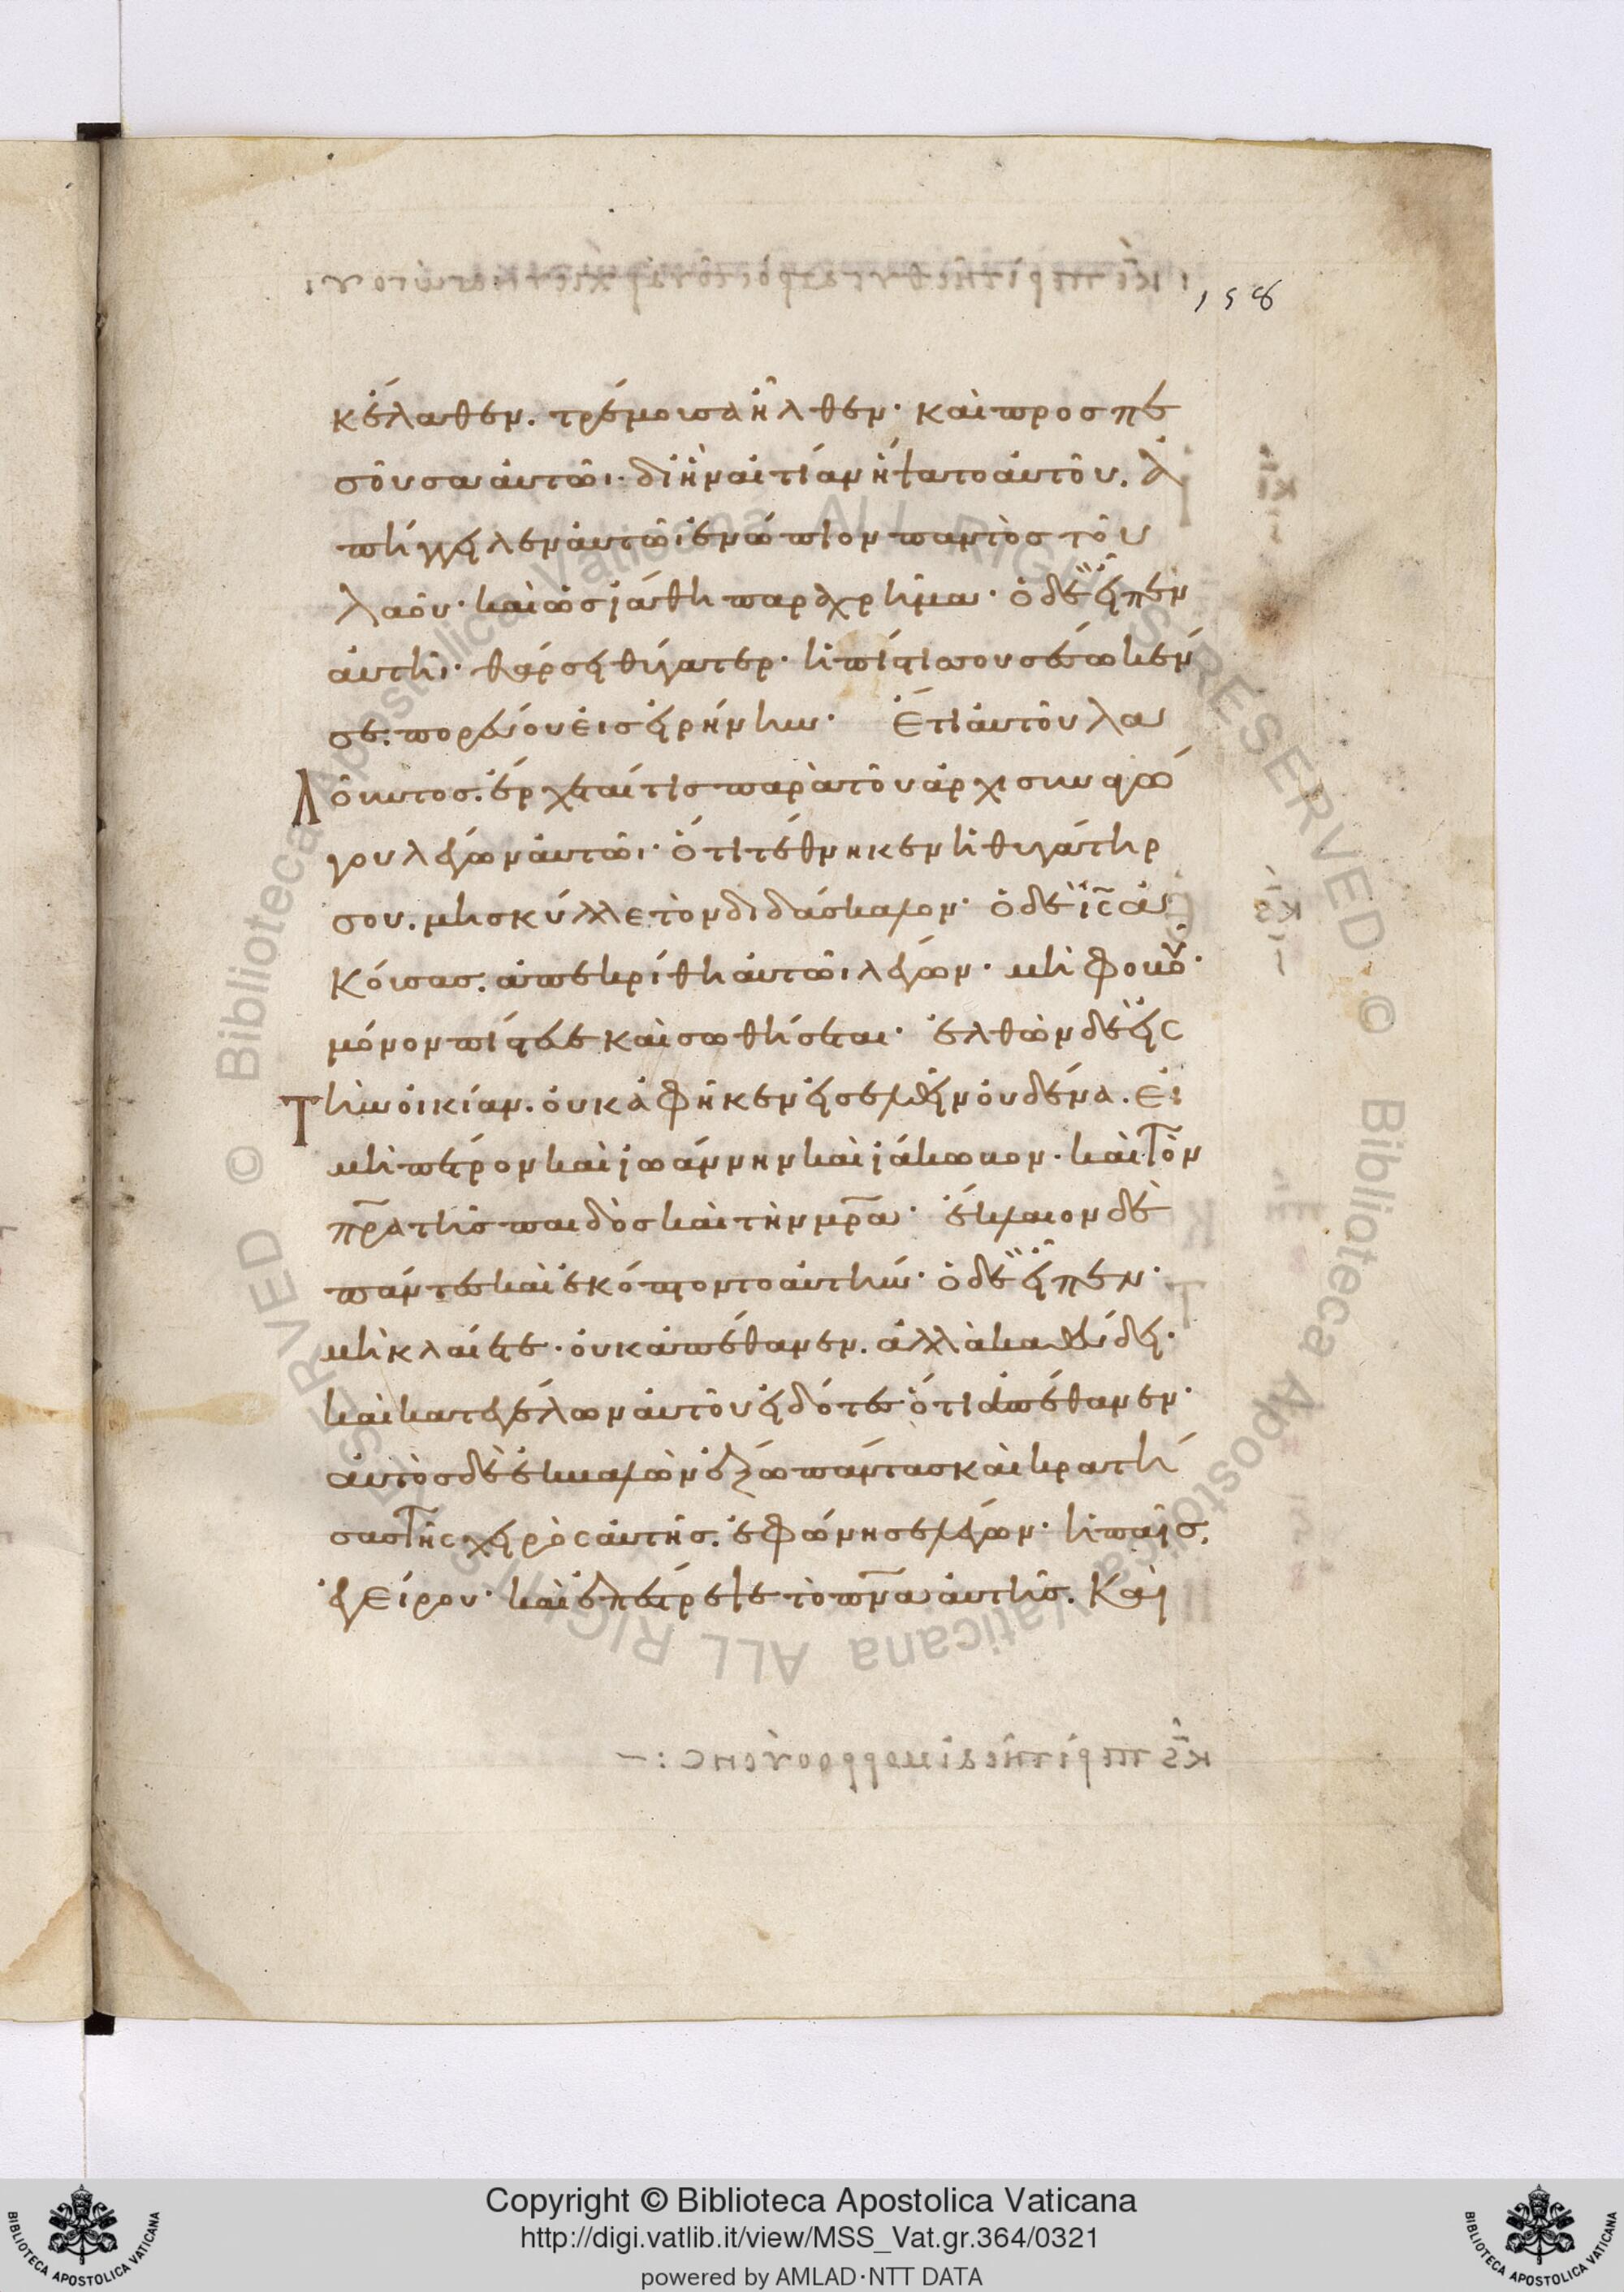 158
κέλαθεν. τρέμουσα ἦλθεν· καὶ προσπε
σοῦσα αὐτῶι· δι ἣν αἰτίαν ἥψατο αὐτοῦ. ἀ
πήγγειλεν αὐτῶι ἐνώπιον παντὸς τοῦ
λαοῦ· καὶ ὡς ἰάθη παραχρῆμα· ὁ δὲ εἶπεν
αὐτῆι· θάρσει θύγατερ· ἡ πίστις σου σέσωκέν
σε. πορεύου εἰς εἰρήνην· Ἔτι αὐτοῦ λα
λοῦντος. ἔρχεταί τις παρὰ τοῦ ἀρχισυναγώ
γου λέγων αὐτῶι· ὅτι τέθνηκεν ἡ θυγάτηρ
σου. μὴ σκύλλε τὸν διδάσκαλον· ὁ δὲ ις ἀ
κούσας. ἀπεκρίθη αὐτῶι λέγων· μὴ φοβοῦ·
μόνον πίστευε καὶ σωθήσεται· ἐλθὼν δὲ εἰς
τὴν οἰκίαν. οὐκ ἀφῆκεν εἰσελθεῖν οὐδένα. εἰ
μὴ πέτρον καὶ ἰωάννην καὶ ἰάκωβον· καὶ τὸν
πρα τῆς παιδὸς καὶ τὴν μρα· ἔκλαιον δὲ
πάντες καὶ ἐκόπτοντο αὐτήν· ὁ δὲ εἶπεν·
μὴ κλαίετε· οὐκ ἀπέθανεν. ἀλλὰ καθεύδει·
καὶ κατεγέλων αὐτοῦ εἰδότες ὅτι ἀπέθανεν·
αὐτὸς δὲ ἐκβαλὼν ἔξω πάντας καὶ κρατή
σας τῆς χειρὸς αὐτῆς. ἐφώνησε λέγων· ἡ παῖς.
ἐγείρου· καὶ ἐπέστρεψε τὸ πνα αὐτῆς. Καὶ
Copyright © Biblioteca Apostolica Vaticana
http://digi.vatlib.it/view/MSS_Vat.gr.364/0321
powered by AMLAD·NTT DATA
BIBLIOTECA APOSTOLICA VATICANA
BIBLIOTECA APOSTOLICA VATICANA
© Biblioteca Apostolica Vaticana ALL RIGHTS RESERVED © Biblioteca Apostolica Vaticana ALL RIGHTS RESERVED